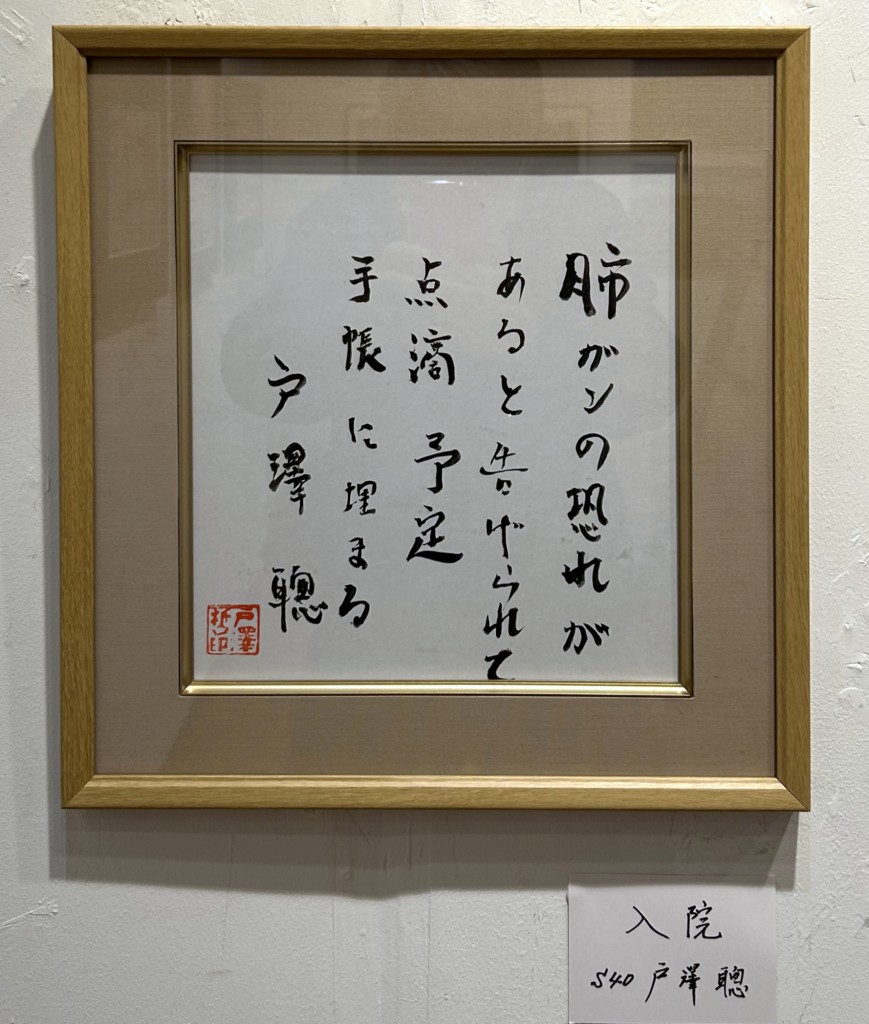 肺ガンの恐れが
あると告げられて
点滴予定
手帳に埋まる
戸澤聰
戸澤
入院
S40 戸澤聰